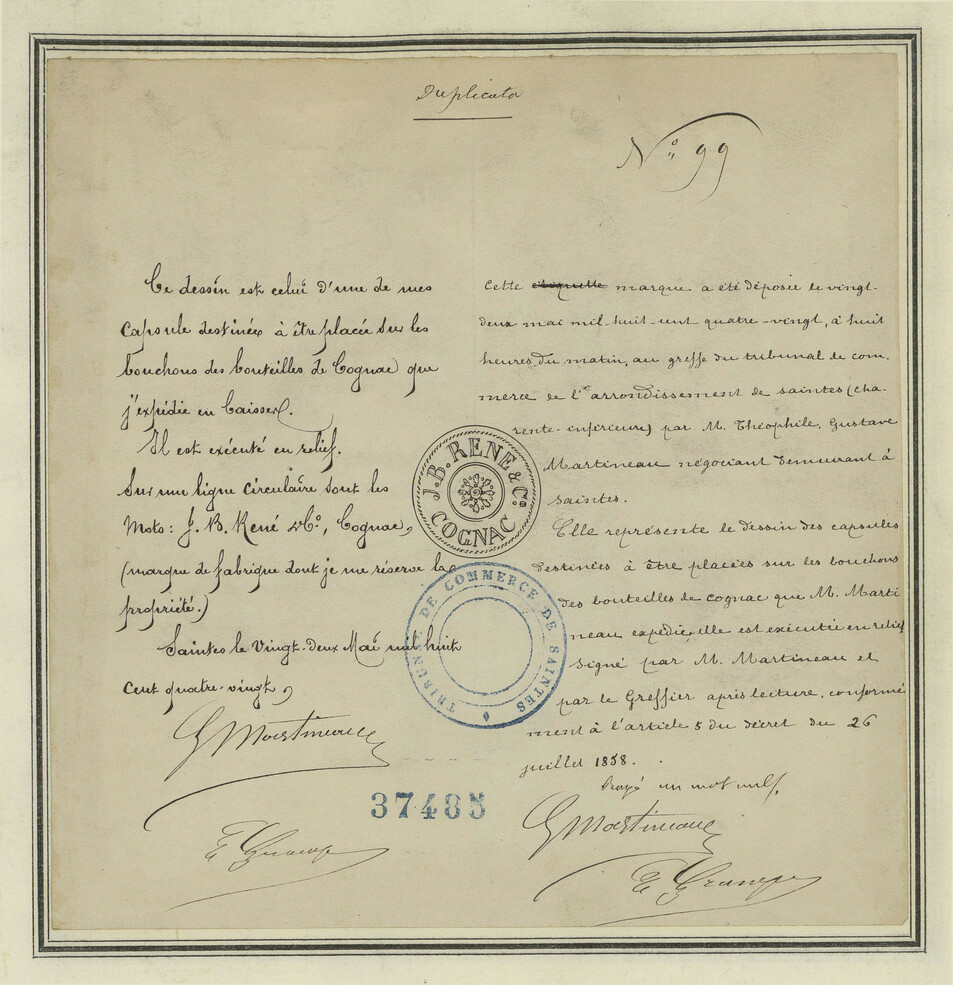 Duplicata
N° 99
Ce dessin est celui d'une de mes
capsule destinées à être placée sur les
bouchons des bouteilles de Cognac que
j'expédie en Caisses.
Il est exécuté en relief.
Sur une ligne circulaire sont les
Mots: J. B. René & Co, Cognac,
(marque de fabrique dont je me réserve la
propriété.)
Saintes le Vingt-deux Mai mil huit
cent quatre-vingt,
G Martineau
Cette etiquette marque a été déposée le vingt-
deux mai mil-huit-cent quatre-vingt, à huit
heures du matin, au greffe du tribunal de com-
merce de l'arrondissement de saintes (cha-
rente-inférieure) par M. Théophile, Gustave
Martineau négociant demeurant à
saintes.
Elle représente le dessin des capsules
destinées à être placées sur les bouchons
des bouteilles de cognac que M. Marti
neau expédie, elle est exécutée en relief
signé par M. Martineau et
par le Greffier après lecture, conformé
ment à l'article 5 du décret du 26
juillet 1858.
Rayé un mot nul.
G Martineau
J. B. RENE & Co.
COGNAC
TRIBUNAL DE COMMERCE DE SAINTES
37485